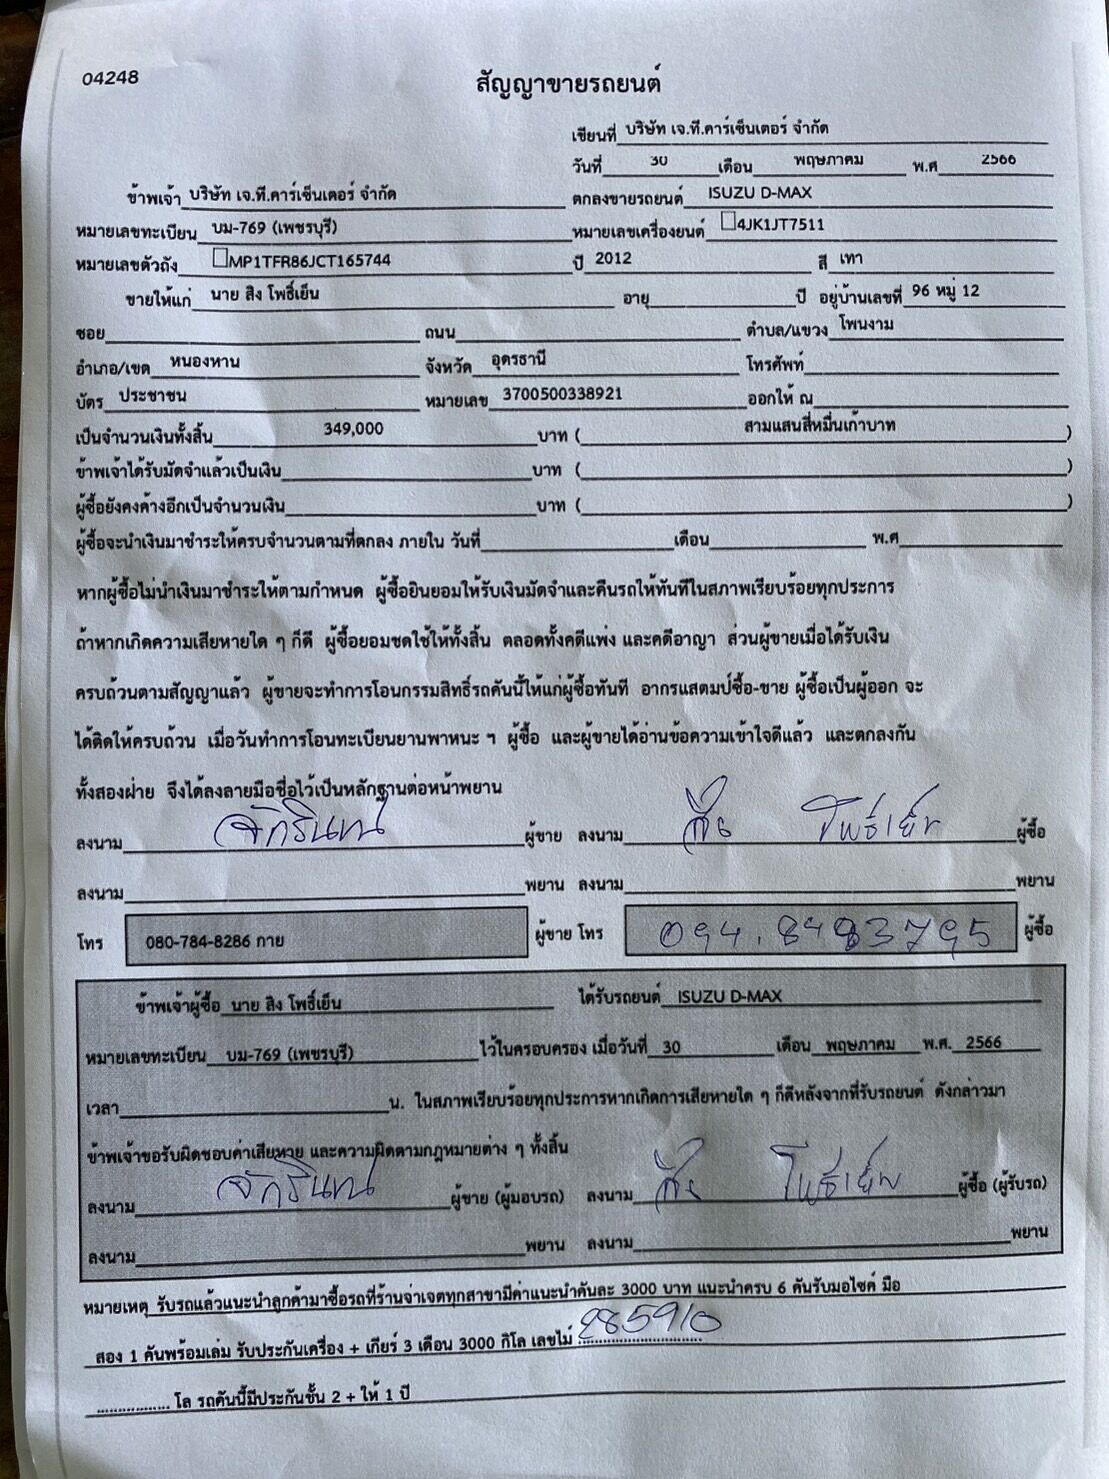 04248
สัญญาขายรถยนต์
เขียนที่ บริษัท เจ.ที.คาร์เซ็นเตอร์ จำกัด
วันที่ 30 เดือน พฤษภาคม พ.ศ 2566
ข้าพเจ้า บริษัท เจ.ที.คาร์เซ็นเตอร์ จำกัด ตกลงขายรถยนต์ ISUZU D-MAX
หมายเลขทะเบียน บม-769 (เพชรบุรี) หมายเลขเครื่องยนต์ 4JK1JT7511
หมายเลขตัวถัง MP1TFR86JCT165744 ปี 2012 สี เทา
ขายให้แก่ นาย สิง โพธิ์เย็น อายุ ปี อยู่บ้านเลขที่ 96 หมู่ 12
ซอย ถนน ตำบล/แขวง โพนงาม
อำเภอ/เขต หนองหาน จังหวัด อุดรธานี โทรศัพท์
บัตร ประชาชน หมายเลข 3700500338921 ออกให้ ณ
เป็นจำนวนเงินทั้งสิ้น 349,000 บาท ( สามแสนสี่หมื่นเก้าบาท )
ข้าพเจ้าได้รับมัดจำแล้วเป็นเงิน บาท ( )
ผู้ซื้อยังคงค้างอีกเป็นจำนวนเงิน บาท ( )
ผู้ซื้อจะนำเงินมาชำระให้ครบจำนวนตามที่ตกลง ภายใน วันที่ เดือน พ.ศ
หากผู้ซื้อไม่นำเงินมาชำระให้ตามกำหนด ผู้ซื้อยินยอมให้รับเงินมัดจำและคืนรถให้ทันทีในสภาพเรียบร้อยทุกประการ
ถ้าหากเกิดความเสียหายใด ๆ ก็ดี ผู้ซื้อยอมชดใช้ให้ทั้งสิ้น ตลอดทั้งคดีแพ่ง และคดีอาญา ส่วนผู้ขายเมื่อได้รับเงิน
ครบถ้วนตามสัญญาแล้ว ผู้ขายจะทำการโอนกรรมสิทธิ์รถคันนี้ให้แก่ผู้ซื้อทันที อากรแสตมป์ซื้อ-ขาย ผู้ซื้อเป็นผู้ออก จะ
ได้ติดให้ครบถ้วน เมื่อวันทำการโอนทะเบียนยานพาหนะ ฯ ผู้ซื้อ และผู้ขายได้อ่านข้อความเข้าใจดีแล้ว และตกลงกัน
ทั้งสองฝ่าย จึงได้ลงลายมือชื่อไว้เป็นหลักฐานต่อหน้าพยาน
ลงนาม จักรินทน์ ผู้ขาย ลงนาม สิง โพธิ์เย็น ผู้ซื้อ
ลงนาม พยาน ลงนาม พยาน
โทร 080-784-8286 กาย ผู้ขาย โทร 094.8483795 ผู้ซื้อ
ข้าพเจ้าผู้ซื้อ นาย สิง โพธิ์เย็น ได้รับรถยนต์ ISUZU D-MAX
หมายเลขทะเบียน บม-769 (เพชรบุรี) ไว้ในครอบครอง เมื่อวันที่ 30 เดือน พฤษภาคม พ.ศ. 2566
เวลา น. ในสภาพเรียบร้อยทุกประการหากเกิดการเสียหายใด ๆ ก็ดีหลังจากที่รับรถยนต์ ดังกล่าวมา
ข้าพเจ้าขอรับผิดชอบค่าเสียหาย และความผิดตามกฎหมายต่าง ๆ ทั้งสิ้น
ลงนาม จักรินทน์ ผู้ขาย (ผู้มอบรถ) ลงนาม สิง โพธิ์เย็น ผู้ซื้อ (ผู้รับรถ)
ลงนาม พยาน ลงนาม พยาน
หมายเหตุ รับรถแล้วแนะนำลูกค้ามาซื้อรถที่ร้านจ่าเจตทุกสาขามีค่าแนะนำคันละ 3000 บาท แนะนำครบ 6 คันรับมอไซค์ มือ
สอง 1 คันพร้อมเล่ม รับประกันเครื่อง + เกียร์ 3 เดือน 3000 กิโล เลขไม่ 285910
................ โล รถคันนี้มีประกันชั้น 2 + ให้ 1 ปี